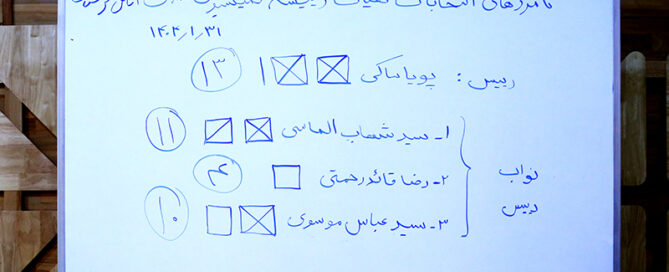 نامزدهای انتخابات هیات رییسه
۱۴۰۴/۱/۳۱
رییس : پویا ساکی ۱۳
۱- سید شهاب الماسی ۱۱
۲- رضا قائدرحمتی ۴
۳- سید عباس موسوی ۱۰
نواب
رییس